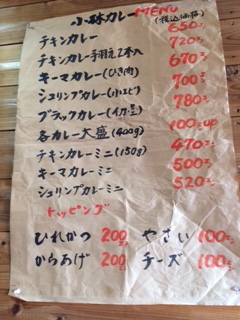 小鉢カレーMENU
(税込価格)
チキンカレー 650円
チキンカレー手羽元2本入 720円
キーマカレー(ひき肉) 670円
シュリンプカレー(小エビ) 700円
ブラックカレー(イカ墨) 780円
各カレー大盛(400g) 100円up
チキンカレーミニ(150g) 470円
キーマカレーミニ 500円
シュリンプカレーミニ 520円
トッピング
ひれかつ 200円 やさい 100円
からあげ 200円 チーズ 100円